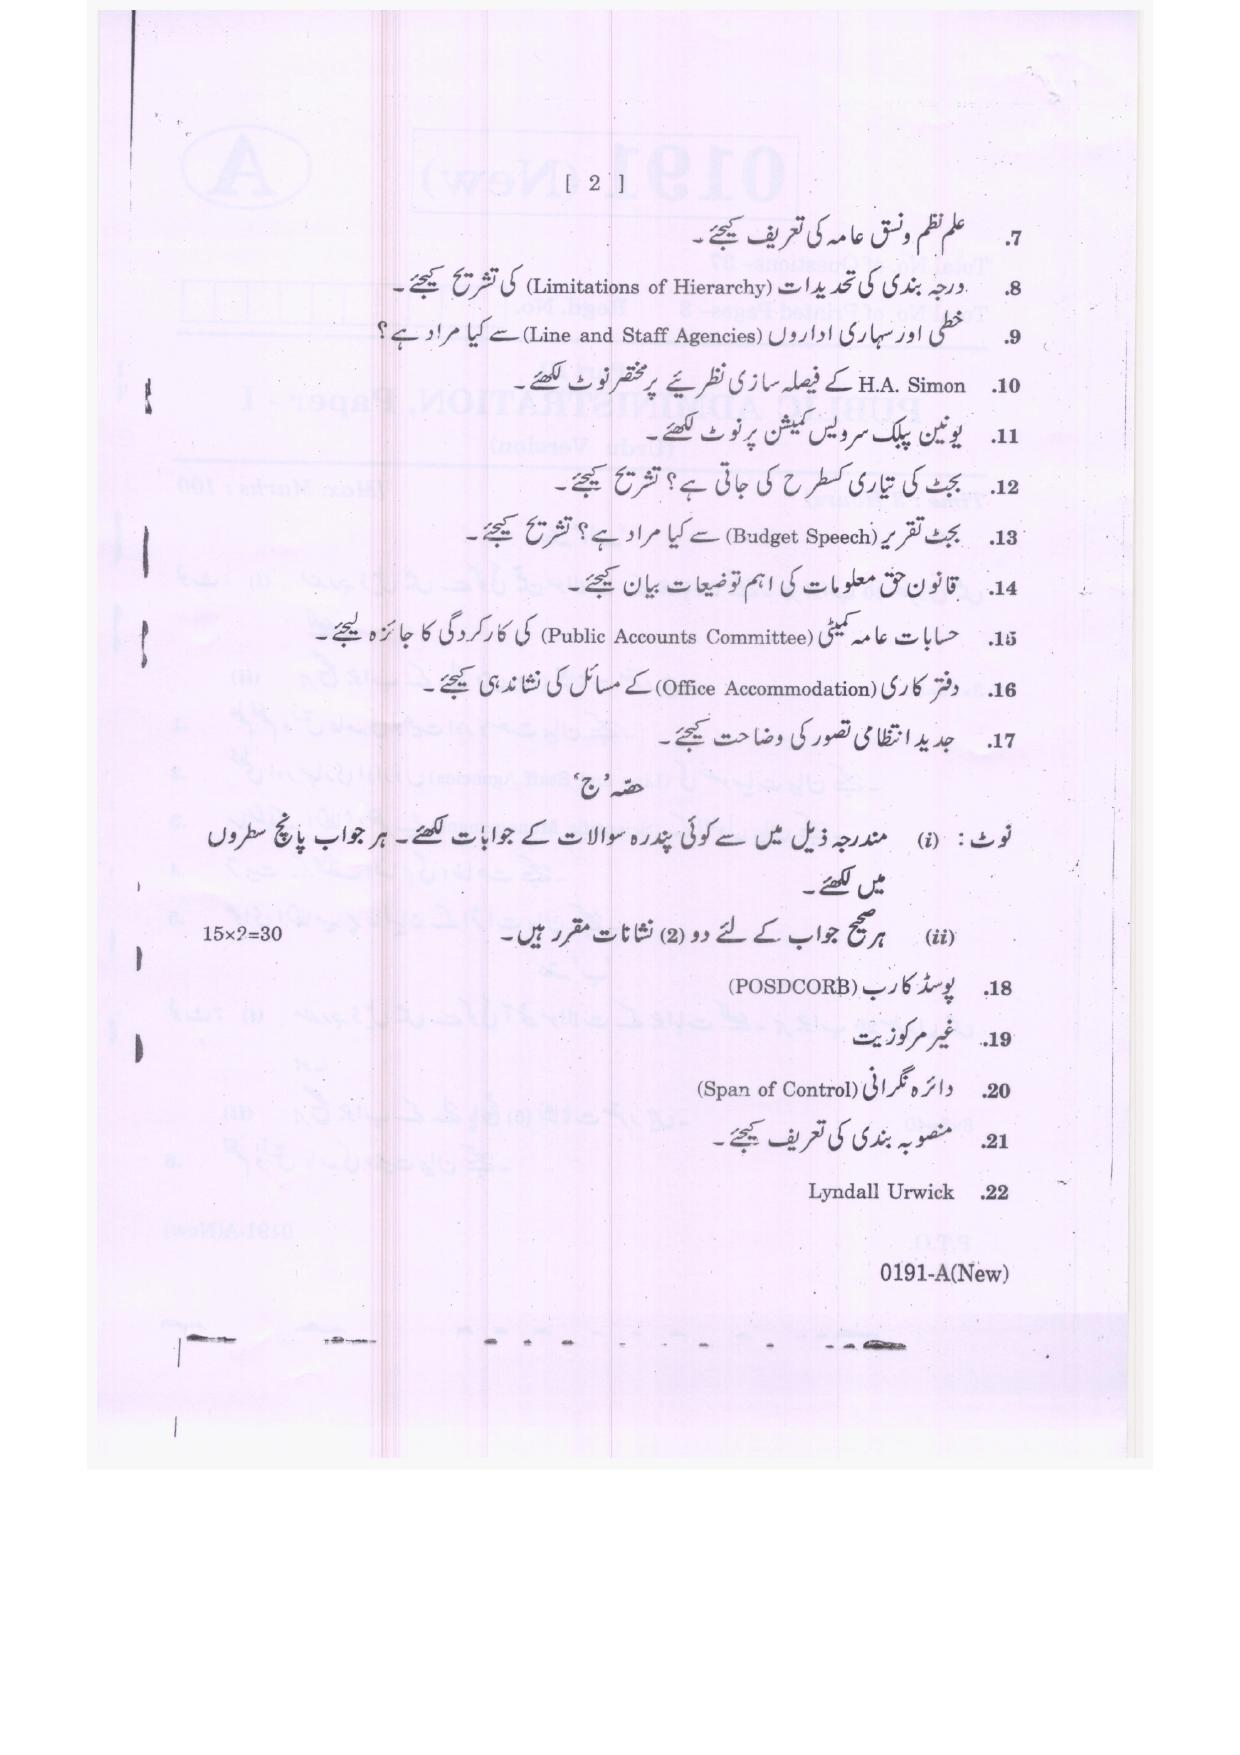 [ 2 ]
7. علم نظم و نسق عامہ کی تعریف کیجئے ۔
8. درجہ بندی کی تحدیدات (Limitations of Hierarchy) کی تشریح کیجئے ۔
9. خطی اور سہاری اداروں (Line and Staff Agencies) سے کیا مراد ہے؟
10. H.A. Simon کے فیصلہ سازی نظریئے پر مختصر نوٹ لکھئے ۔
11. یونین پبلک سرویس کمیشن پر نوٹ لکھئے ۔
12. بجٹ کی تیاری کسطرح کی جاتی ہے؟ تشریح کیجئے ۔
13. بجٹ تقریر (Budget Speech) سے کیا مراد ہے؟ تشریح کیجئے ۔
14. قانون حق معلومات کی اہم توضیعات بیان کیجئے ۔
15. حسابات عامہ کمیٹی (Public Accounts Committee) کی کارکردگی کا جائزہ لیجئے ۔
16. دفتر کاری (Office Accommodation) کے مسائل کی نشاندہی کیجئے ۔
17. جدید انتظامی تصور کی وضاحت کیجئے ۔
حصّہ ’ج‘
نوٹ : (i) مندرجہ ذیل میں سے کوئی پندرہ سوالات کے جوابات لکھئے ۔ ہر جواب پانچ سطروں
میں لکھئے ۔
(ii) ہر صحیح جواب کے لئے دو (2) نشانات مقرر ہیں ۔ 15×2=30
18. پوسڈ کارب (POSDCORB)
19. غیر مرکوزیت
20. دائرہ نگرانی (Span of Control)
21. منصوبہ بندی کی تعریف کیجئے ۔
22. Lyndall Urwick
0191-A(New)